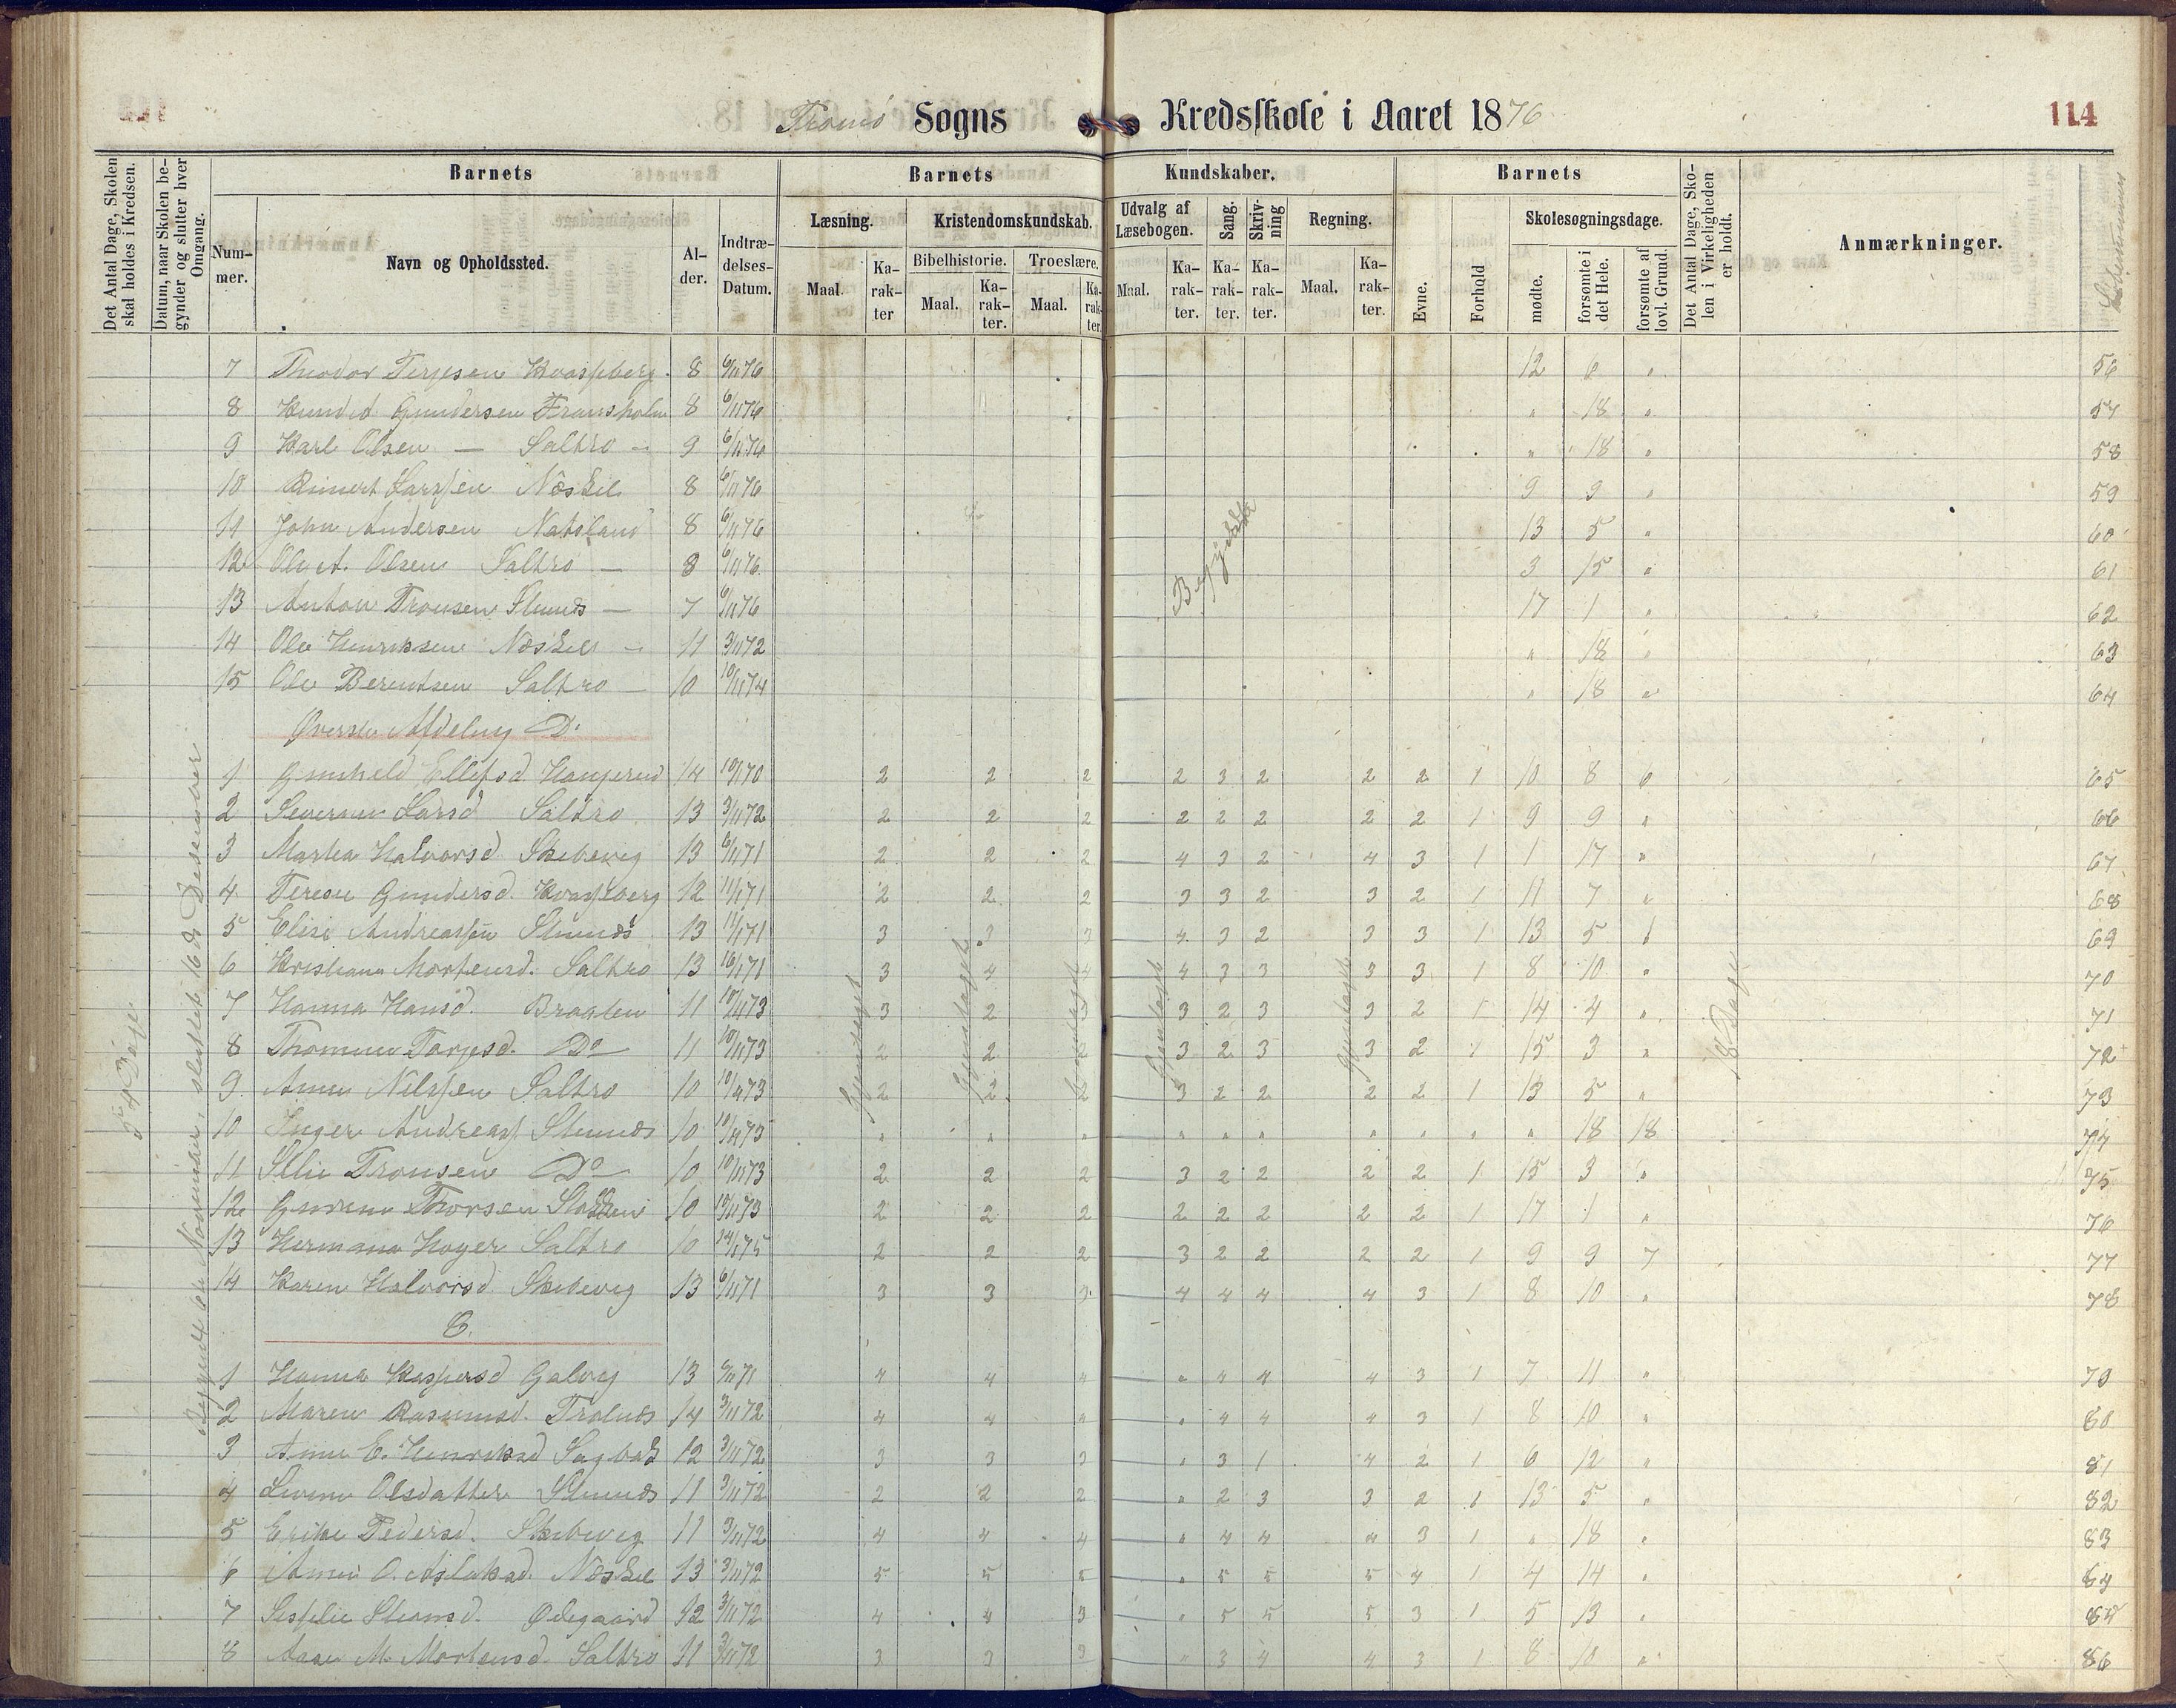 Tromø Sogns Kredsskole i Aaret 1876
114
Det Antal Dage, Skolen skal holdes i Kredsen.
Datum, naar Skolen begynder og slutter hver Omgang.
Barnets
Nummer.
Navn og Opholdssted.
Alder.
Indtrædelses-Datum.
Barnets Kundskaber.
Læsning.
Maal.
Karakter
Kristendomskundskab.
Bibelhistorie.
Maal.
Karakter.
Troeslære.
Maal.
Karakter.
Udvalg af Læsebogen.
Maal.
Karakter.
Sang.
Karakter.
Skrivning
Karakter.
Regning.
Maal.
Karakter.
Barnets
Evne.
Forhold
Skolesøgningsdage.
mødte.
forsømte i det Hele.
forsømte af lovl. Grund.
Det Antal Dage, Skolen i Virkeligheden er holdt.
Anmærkninger.
7 Theodor Terjesen 8 6/11 76 12 6 " 56
8 Gundersen 8 6/11 76 " 18 " 57
9 Karl Olsen — Saltrø — 9 6/11 76 " 18 " 58
10 Larssen Næskil 8 6/11 76 9 9 " 59
11 John Andersen 8 6/11 76 13 5 " 60
12 Ole A. Olsen Saltrø — 8 6/11 76 3 15 " 61
13 Anton Tronsen — 7 6/11 76 17 1 " 62
14 Ole Henriksen Næskil — 11 3/11 72 " 18 " 63
15 Ole Berentsen Saltrø — 10 10/11 74 " 18 " 64
Øverste Afdeling D.
1 Gunhild Ellefsd. 14 2 2 2 2 3 2 2 2 1 10 8 6 65
2 Larsd Saltrø 13 3/11 72 2 2 2 2 2 2 2 2 1 9 9 " 66
3 Martha Halvorsd. Skibevig 13 6/11 71 2 2 2 4 3 2 4 3 1 1 17 " 67
4 Terese Gundersd. 12 2 2 2 3 3 2 3 2 1 11 7 " 68
5 Elise Andreassen 13 3 3 3 4 3 2 3 3 1 13 5 69
6 Kristiana Mortensd. Saltrø 13 3 4 4 4 3 3 3 3 1 8 10 " 70
7 Hanna Hansd. Braaten 11 10/11 73 3 2 3 3 2 3 3 2 1 14 4 " 71
8 Tarjesd. Do 11 10/11 73 2 2 2 3 2 3 3 2 1 15 3 " 72
9 Anne Nilssen Saltrø 10 10/11 73 2 2 2 3 2 2 2 2 1 13 5 " 73
10 Inger Andreass. 10 10/11 73 " " " " " " " " " " 18 18 74
11 Tronsen Do 10 10/11 73 2 2 2 3 2 2 2 2 1 15 3 " 75
12 Thorsen 10 10/11 73 2 2 2 2 2 2 2 2 1 17 1 " 76
13 Hermana Hoyer Saltrø 10 2 2 2 3 2 2 2 2 1 9 9 7 77
14 Karen Halvorsd. Skibevig 13 6/11 71 3 3 3 4 4 4 4 3 1 8 10 " 78
C.
1 Hanna Kaspersd 13 4 4 4 " 4 4 4 3 1 7 11 " 79
2 Maren Rasmusd. 14 3/11 72 4 4 4 " 4 4 4 3 1 8 10 " 80
3 Anne E. Henriksd 12 3/11 72 3 3 3 " 3 1 4 2 1 6 12 " 81
4 Olsdatter 11 3/11 72 2 2 2 " 2 3 3 2 1 13 5 " 82
5 Pedersd. Skibevig 11 3/11 72 4 4 4 " 4 4 4 3 1 " 18 " 83
6 Anne O. Aslaksd. Næskil 13 3/11 72 5 5 5 " 5 5 5 4 1 4 14 " 84
7 Ødegaard 12 3/11 72 4 4 3 " 5 5 5 3 1 5 13 " 85
8 Aase M. Mortensd. Saltrø 11 3/11 72 3 3 3 " 3 4 4 3 1 8 10 " 86
54 Dage
Begyndt 6te November, sluttet 16de Desember
Gjentaget
Gjentaget
Gjentaget
Gjentaget
Gjentaget
18 Dage